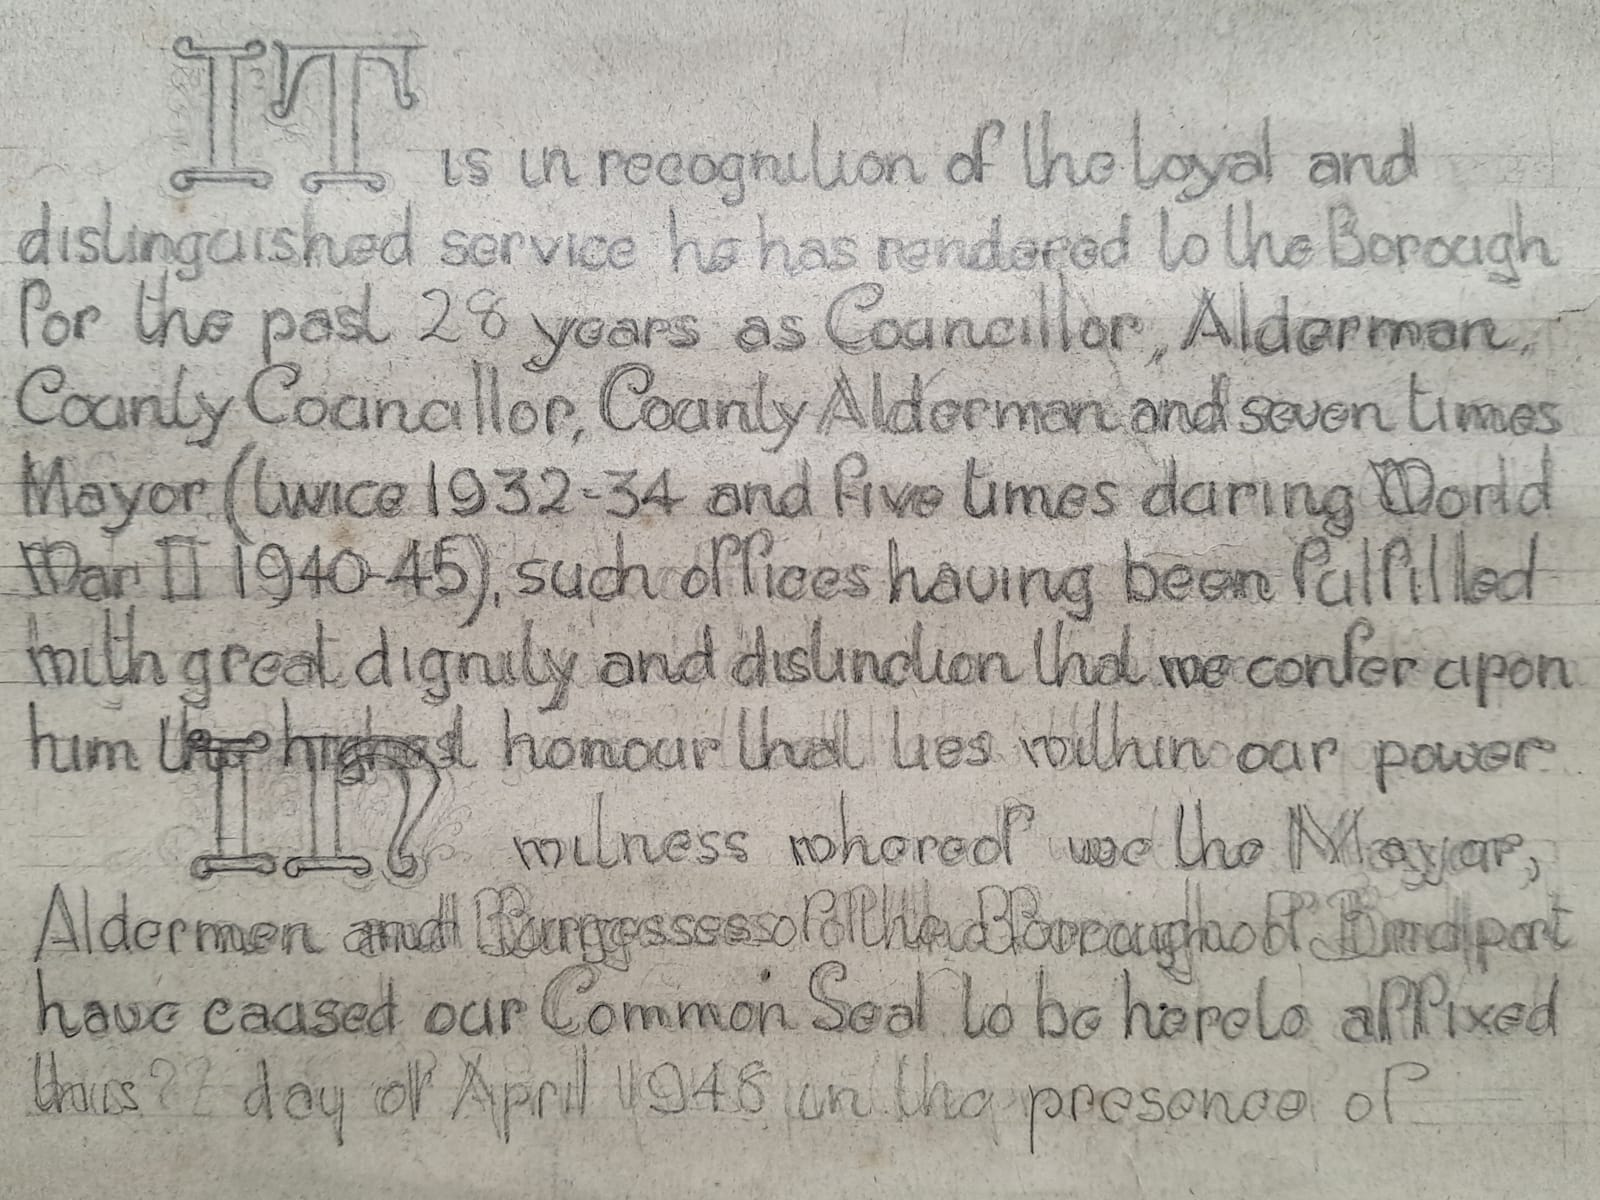 IT is in recognition of the loyal and
distinguished service he has rendered to the Borough
for the past 28 years as Councillor, Alderman,
County Councillor, County Alderman and seven times
Mayor (twice 1932-34 and five times during World
War II 1940-45), such offices having been fulfilled
with great dignity and distinction that we confer upon
him the highest honour that lies within our power
IN witness whereof we the Mayor,
Aldermen and Burgesses of the Borough of Bridport
have caused our Common Seal to be hereto affixed
this ?? day of April 1946 in the presence of